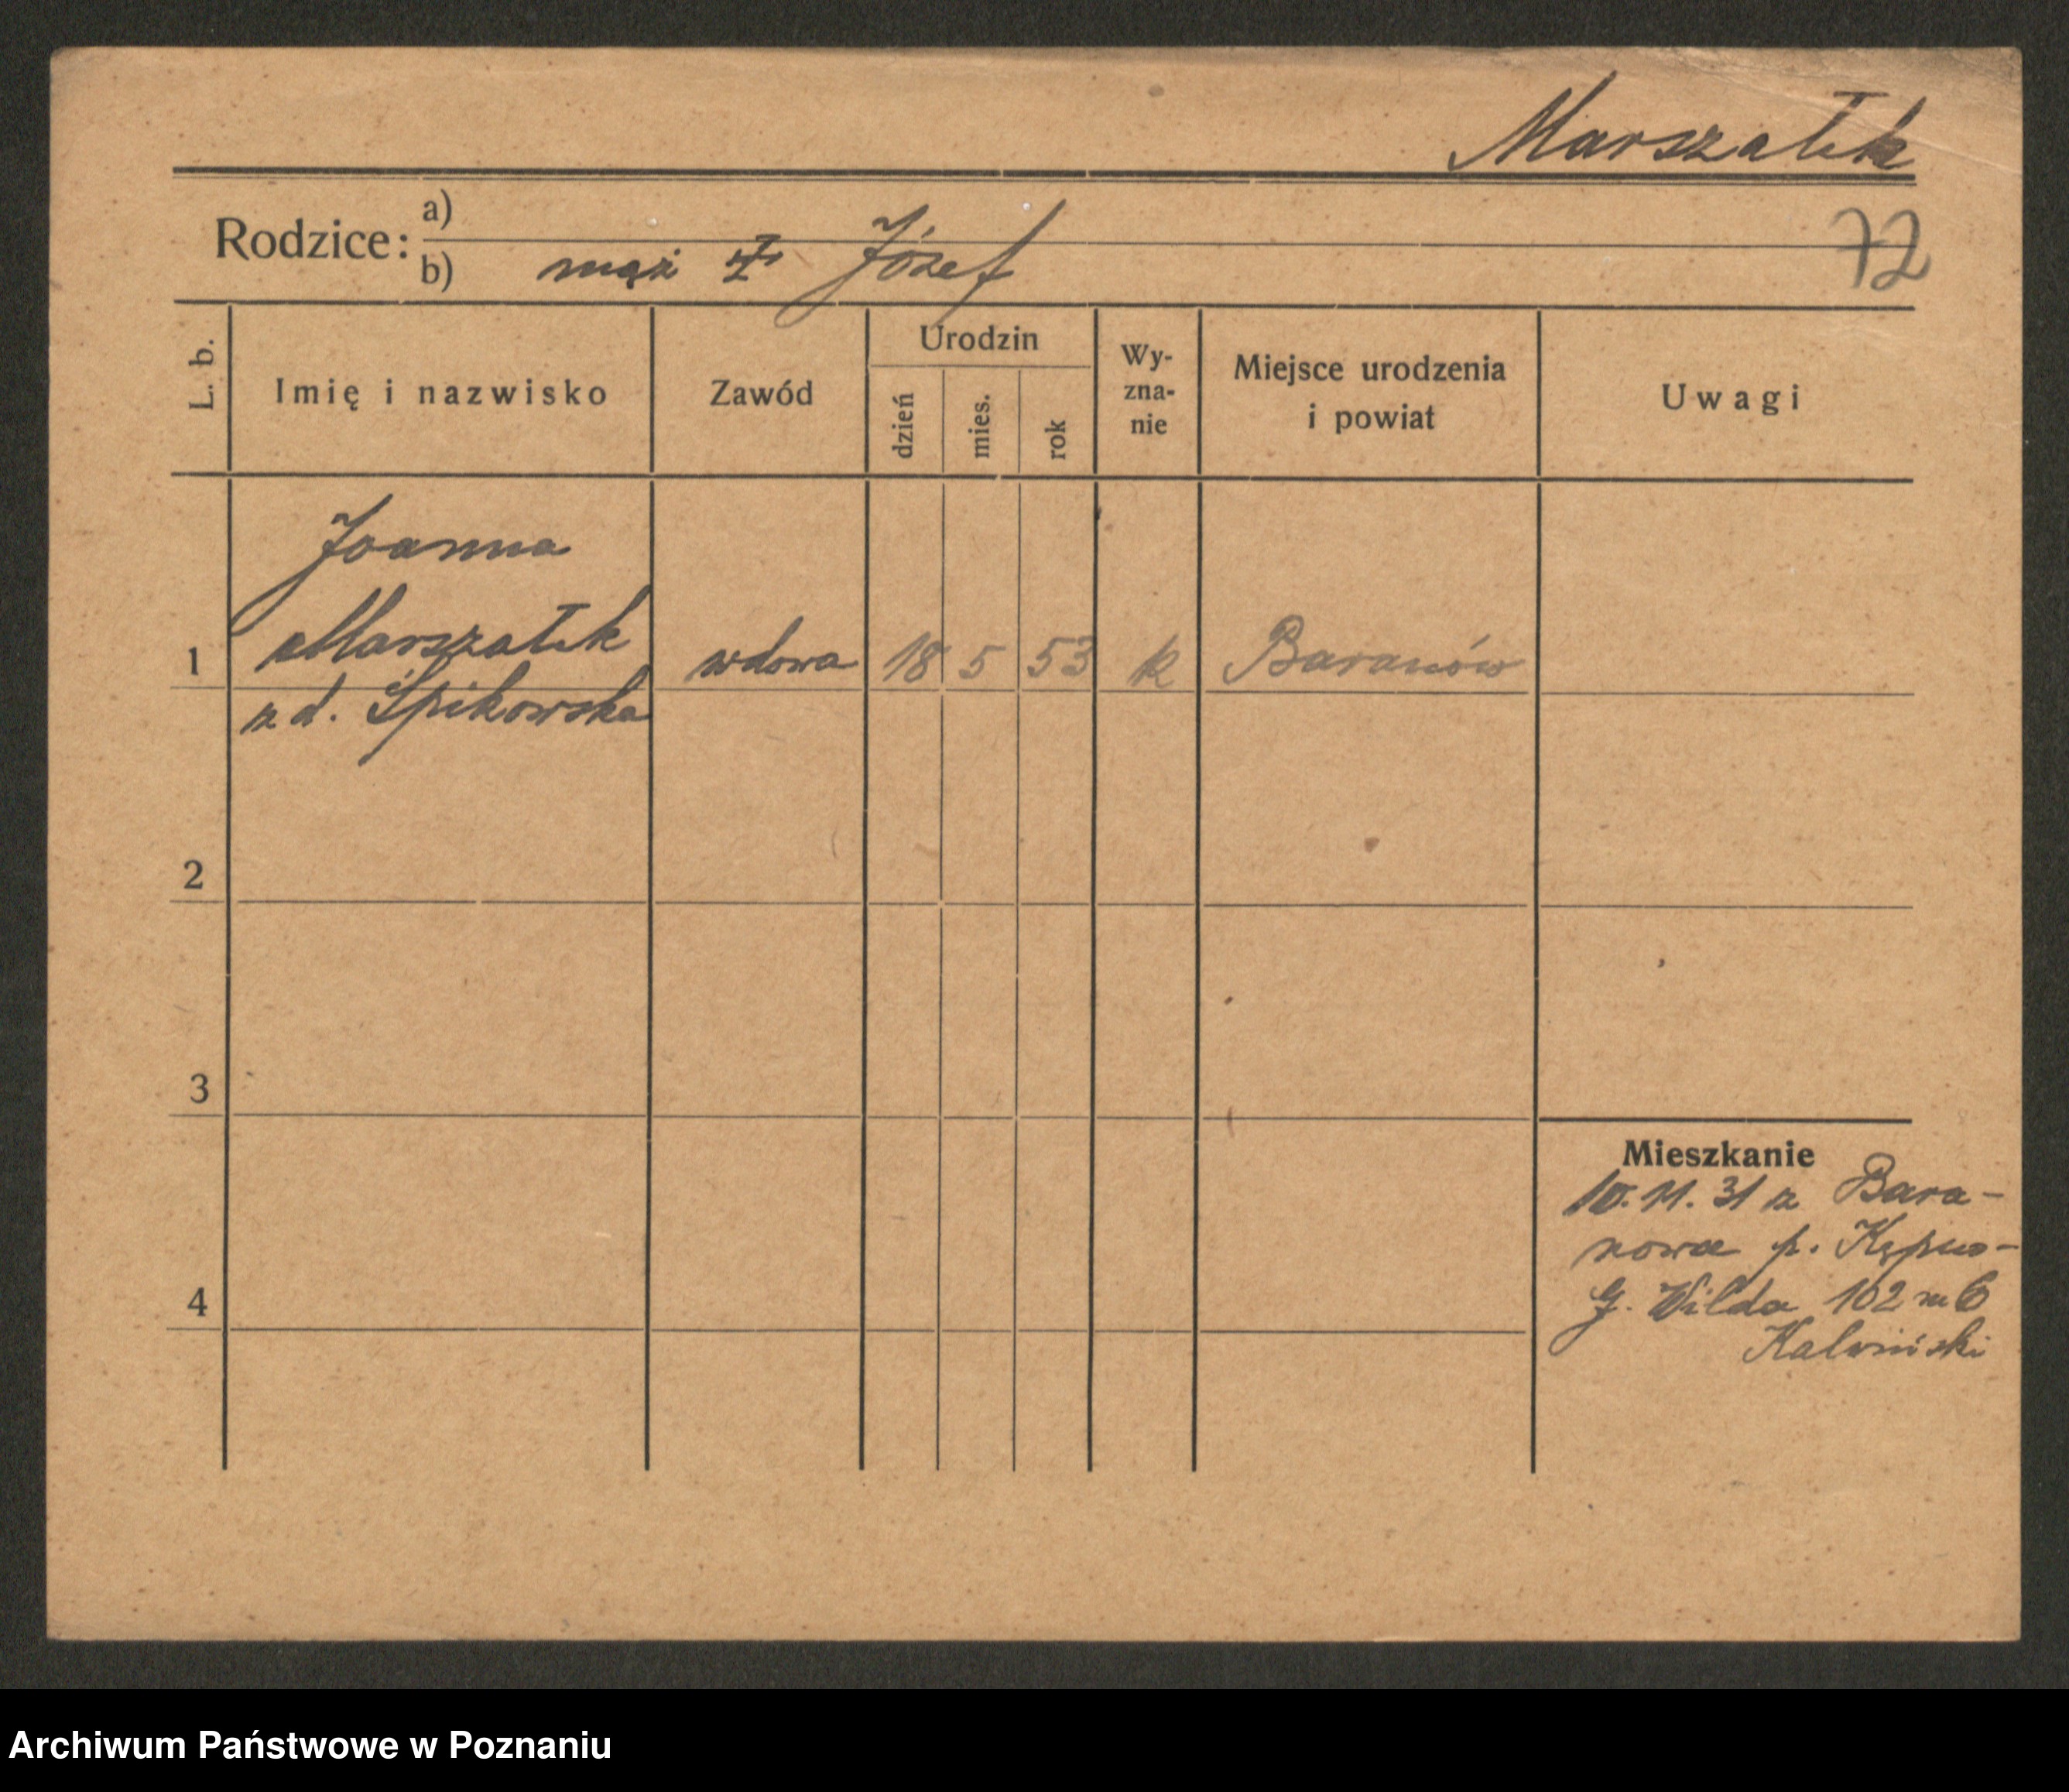 Marszałek
Rodzice: a)
b) mąż ‡ Józef
72
L. b.
Imię i nazwisko
Zawód
Urodzin
dzień
mies.
rok
Wy-
zna-
nie
Miejsce urodzenia
i powiat
Uwagi
Joanna
Marszałek
1 wdowa 18 5 53 k Baranów
z d. Śpikowska
2
3
Mieszkanie
10.11.31 z Bara-
nowa p. Kępno-
G. Wilda 102 m 6
Kalwiński
4
Archiwum Państwowe w Poznaniu